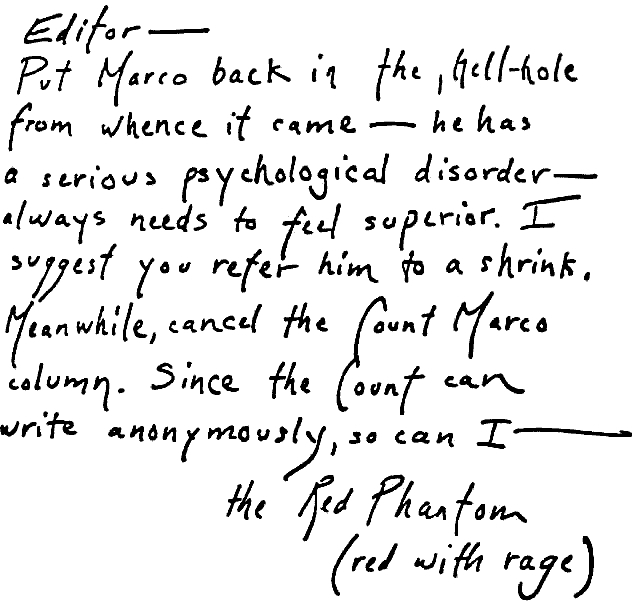 Editor—
Put Marco back in the, hell-hole
from whence it came — he has
a serious psychological disorder—
always needs to feel superior. I
suggest you refer him to a shrink.
Meanwhile, cancel the Count Marco
column. Since the Count can
write anonymously, so can I—
the Red Phantom
(red with rage)